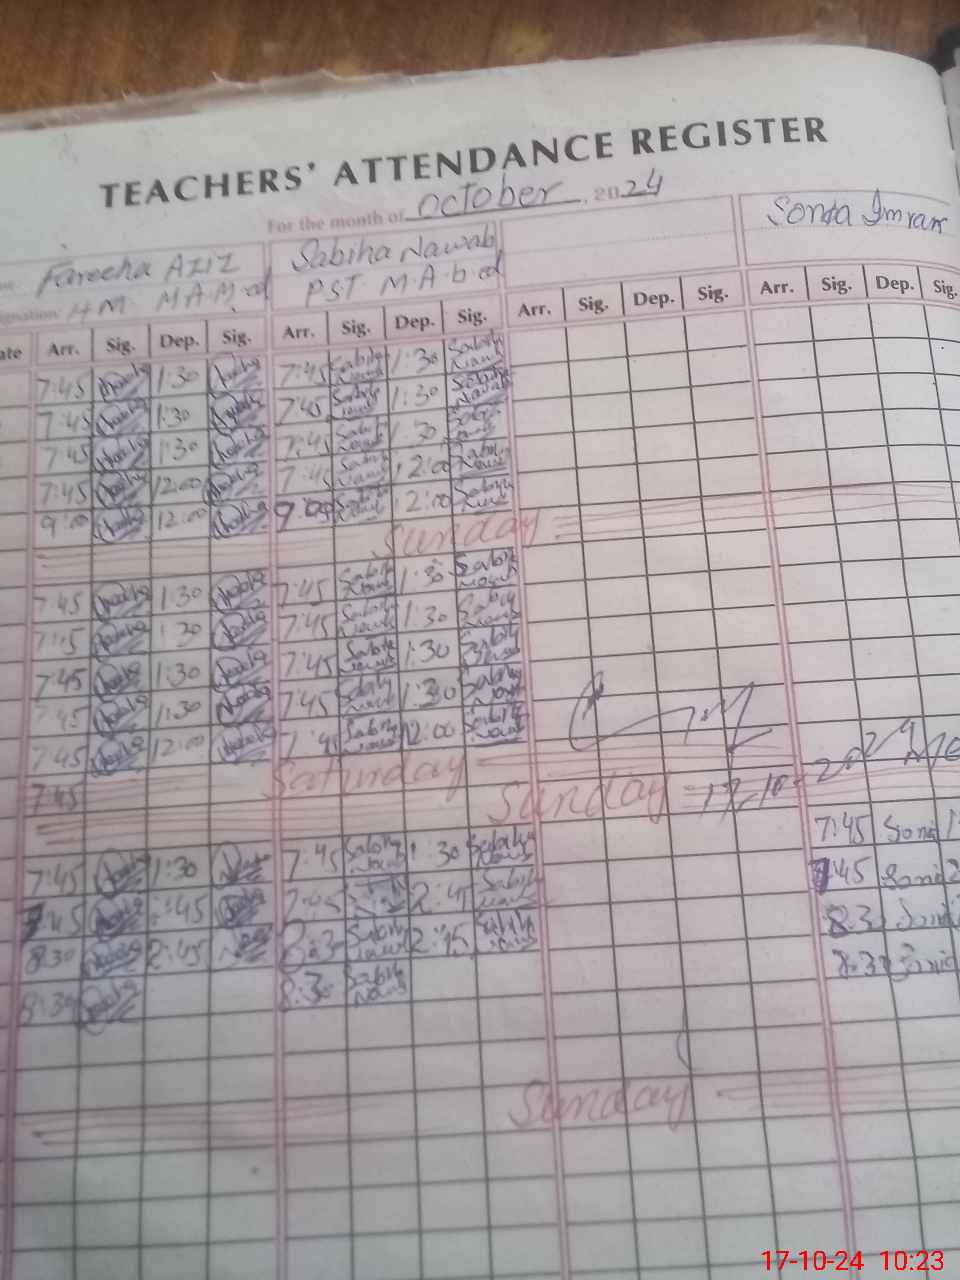 TEACHERS' ATTENDANCE REGISTER
For the month of October 2024
Fareeha Aziz Sabiha Nawab Sonia Imran
HM M.A M.ed PST M.A b.ed
Arr. Sig. Dep. Sig. Arr. Sig. Dep. Sig. Arr. Sig. Dep. Sig. Arr. Sig. Dep. Sig.
7:45 1:30 7:45 Sabiha Nawab 1:30 Sabiha Nawab
7:45 1:30 7:45 Sabiha Nawab 1:30 Sabiha Nawab
7:45 1:30 7:45 Sabiha Nawab 1:30 Sabiha Nawab
7:45 12:00 7:45 Sabiha Nawab 12:00 Sabiha Nawab
9:00 12:00 9:00 Sabiha Nawab 12:00 Sabiha Nawab
Sunday
7:45 1:30 7:45 Sabiha Nawab 1:30 Sabiha Nawab
7:45 1:30 7:45 Sabiha Nawab 1:30 Sabiha Nawab
7:45 1:30 7:45 Sabiha Nawab 1:30 Sabiha Nawab
7:45 1:30 7:45 Sabiha Nawab 1:30 Sabiha Nawab
7:45 12:00 7:45 Sabiha Nawab 12:00 Sabiha Nawab
Saturday
7:45
Sunday
7:45 1:30 7:45 Sabiha Nawab 1:30 Sabiha Nawab 7:45 Sonia
7:45 2:45 7:45 2:45 Sabiha Nawab 7:45 Sonia
8:30 2:45 8:30 Sabiha Nawab 2:45 Sabiha Nawab 8:30 Sonia
8:30 8:30 Sabiha Nawab 8:30 Sonia
Sunday
17-10-24 10:23